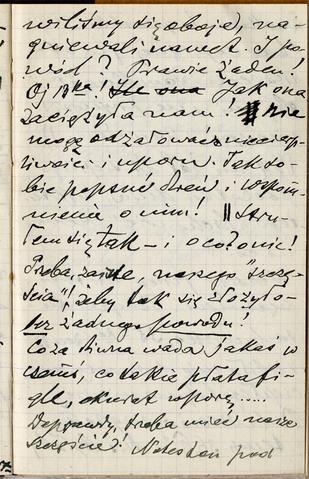 wiliśmy się oboje), na-
gniewali nawet. I po-
wód? Prawie żaden!
Oj 13ka! Jak ona
zaciężyła nam! nie
mogę odżałować niecierp-
liwości i uporu. Tak so-
bie popsuć dzień i wspom-
nienie o nim! Stru-
łem się tak — i o co, o nic!
Trzeba, zaiste, naszego "szczę-
ścia"!, żeby tak się złożyło —
bez żadnego powodu!
Co za dziwna wada jakaś w
czemś, co takie płata fi-
gle, akurat w porę.....
Doprawdy, trzeba mieć nasze
szczęście! Notes ten pod